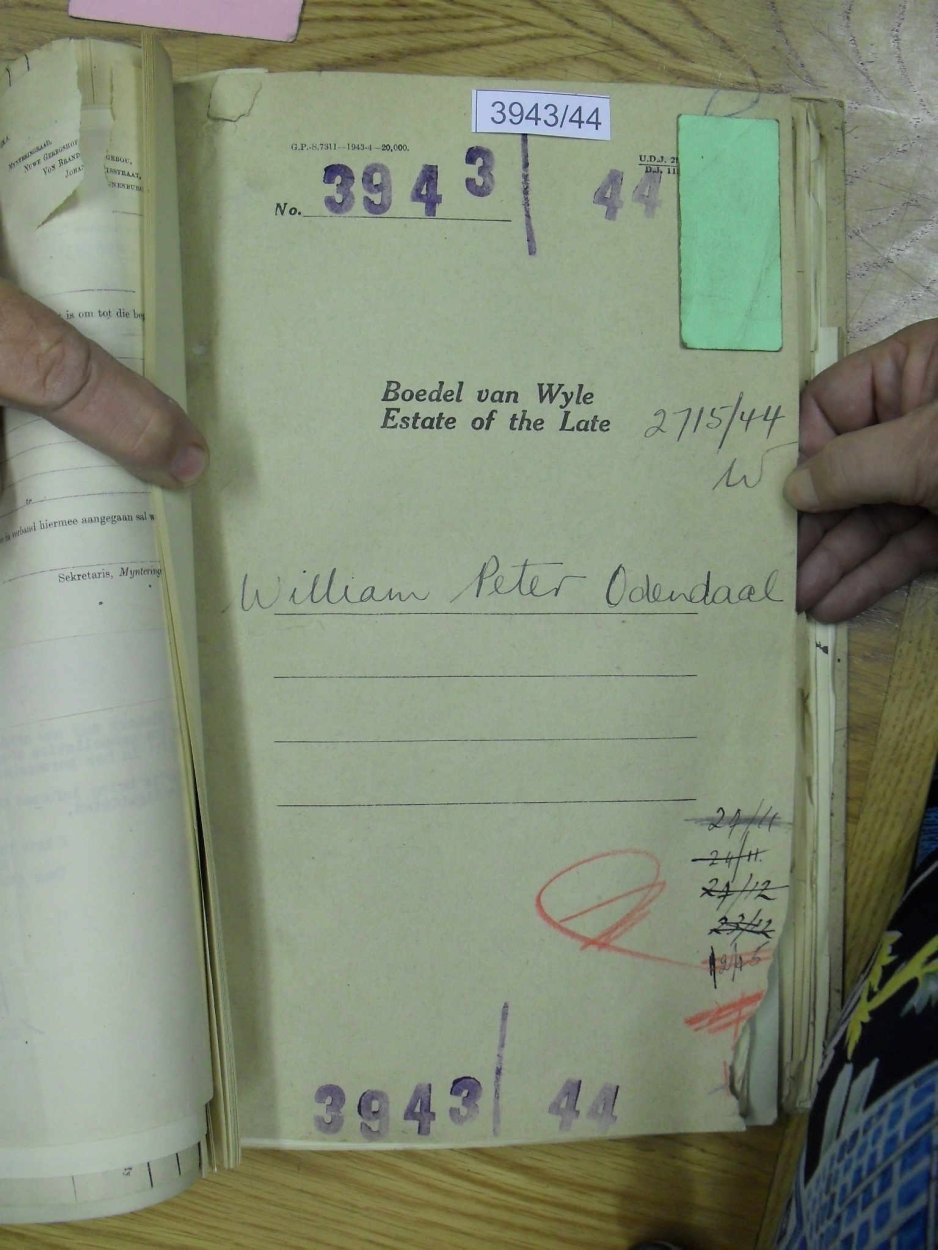 3943/44
G.P.-S.7311—1943-4—20,000.
U.D.J.
D.J.
No. 3943/44
Boedel van Wyle
Estate of the Late
27/5/44
W
William Peter Odendaal
24/11
24/11
27/12
23/12
3943/44
MYNTERINGRAAD,
NUWE GEREGSHOF
VON BRAND
GEBOU,
is om tot die be
te
verband hiermee aangegaan sal w
Sekretaris, Myntering